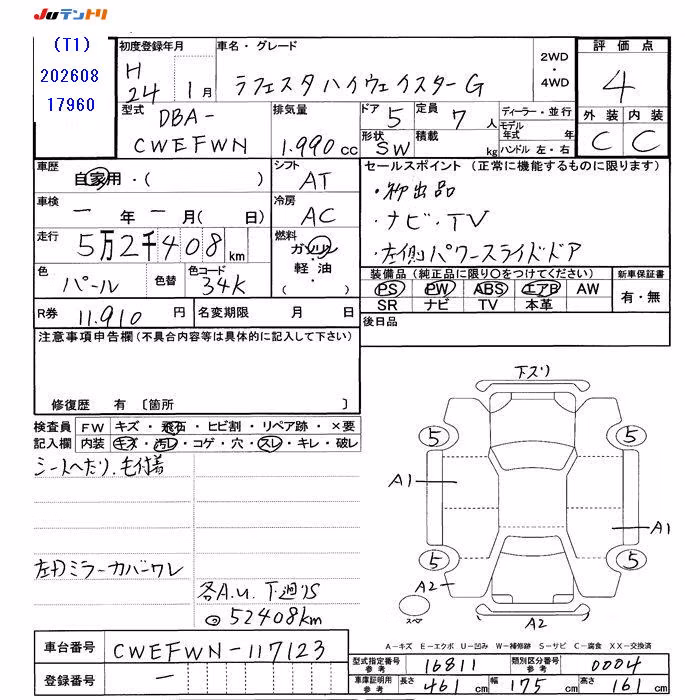 Juテントリ
(T1)
202608
17960
初度登録年月
H
24 1月
車名・グレード
ラフェスタハイウェイスターG
2WD
・
4WD
評価点
4
外装 内装
C C
型式
DBA-
CWEFWN
排気量
1.990cc
ドア 5
定員 7人
形状 SW
積載 kg
ディーラー・並行
モデル
年式 年
ハンドル 左・右
車歴
自家用・( )
シフト
AT
車検
一年一月( 日)
冷房
AC
走行
5万2千408km
燃料
ガソリン
軽・油
・
( )
色
パール
色替
色コード
34K
R券 11.910円
名変期限 月 日
セールスポイント(正常に機能するものに限ります)
・初出品
・ナビ・TV
・左側パワースライドドア
装備品(純正品に限り○をつけてください)
PS PW ABS エアB AW
SR ナビ TV 本革
新車保証書
有・無
後日品
注意事項申告欄(不具合内容等は具体的に記入して下さい)
修復歴 有 〔箇所 〕
検査員 FW キズ・飛石・ヒビ割・リペア跡・×要
記入欄 内装 キズ・汚レ・コゲ・穴・スレ・キレ・破レ
シートへたり.毛付着
左Fミラーカバーワレ
各A.U.下廻りS
◎52408km
下ズリ
5 5
A1
A1
5 5
A2
スペ
A2
A-キズ E-エクボ U-凹み W-補修跡 S-サビ C-腐食 XX-交換済
車台番号 CWEFWN-117123
登録番号 一
型式指定番号
参考
16811
類別区分番号
参考
0004
車庫証明用
参考
長さ 461cm 幅 175cm 高さ 161cm